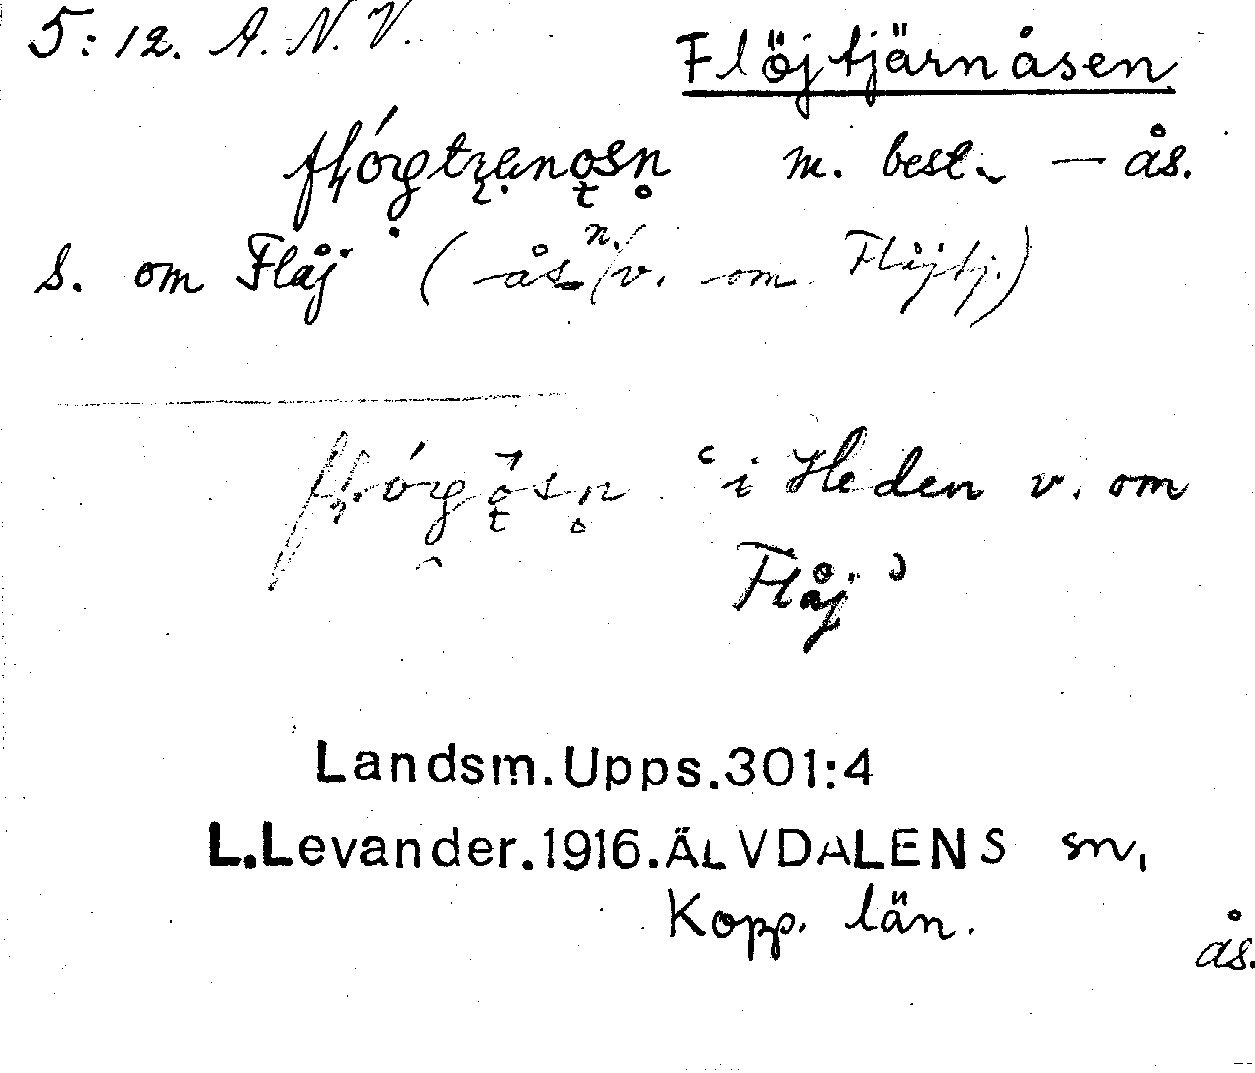 5:12. A.N.V.
Flöjtjärnåsen
m. best. — ås.
S. om Flåj (— ås n./v. om Flåjtj.)
‘i Heden v. om
Flåj’
Landsm.Upps.301:4
L.Levander.1916.ÄLVDALENS sn,
Kopp. län.
ås.